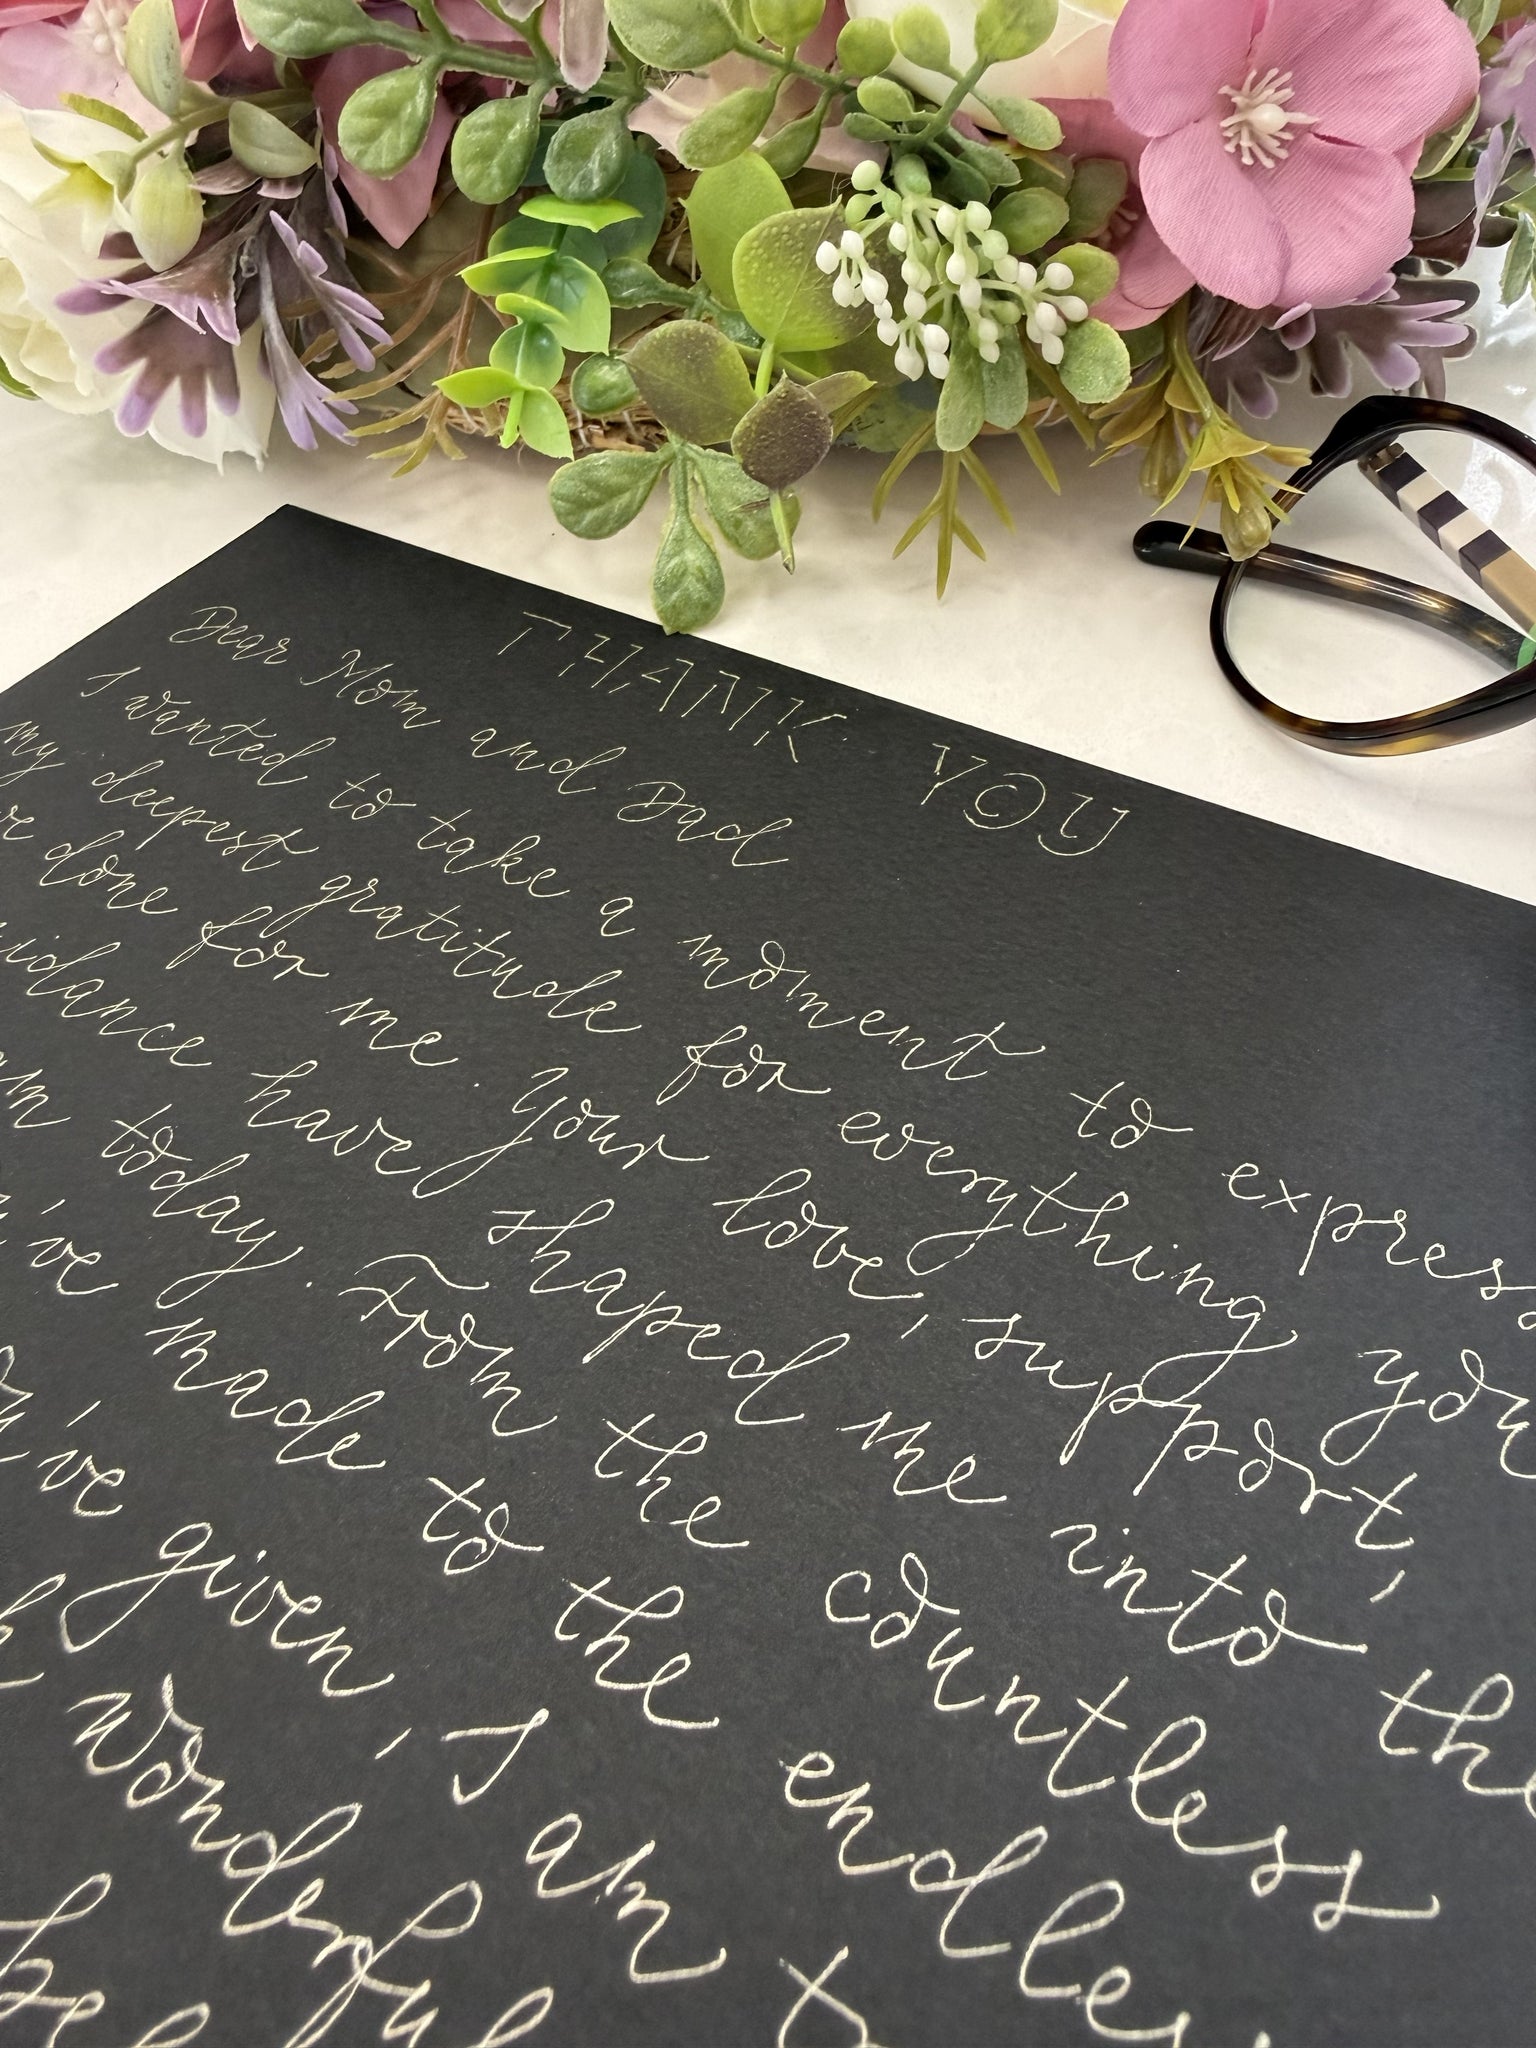 THANK YOU
Dear Mom and Dad
I wanted to take a moment to express
my deepest gratitude for everything you
done for me. Your love, support,
have shaped me into the
today. From the countless
made to the endless
given, I am
wonderful